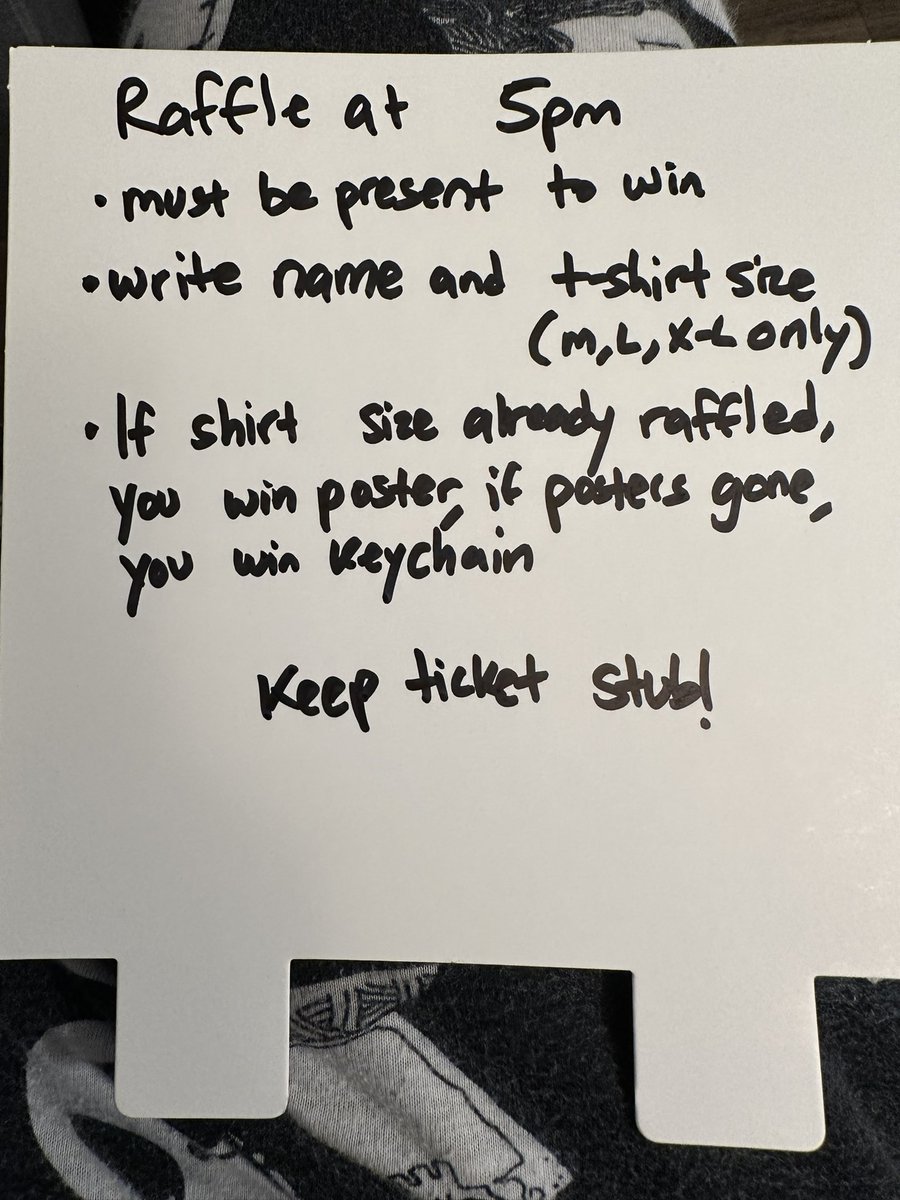 Raffle at 5pm
• must be present to win
• write name and t-shirt size
(M, L, X-L only)
• If shirt size already raffled,
you win poster, if posters gone,
you win keychain
Keep ticket stub!